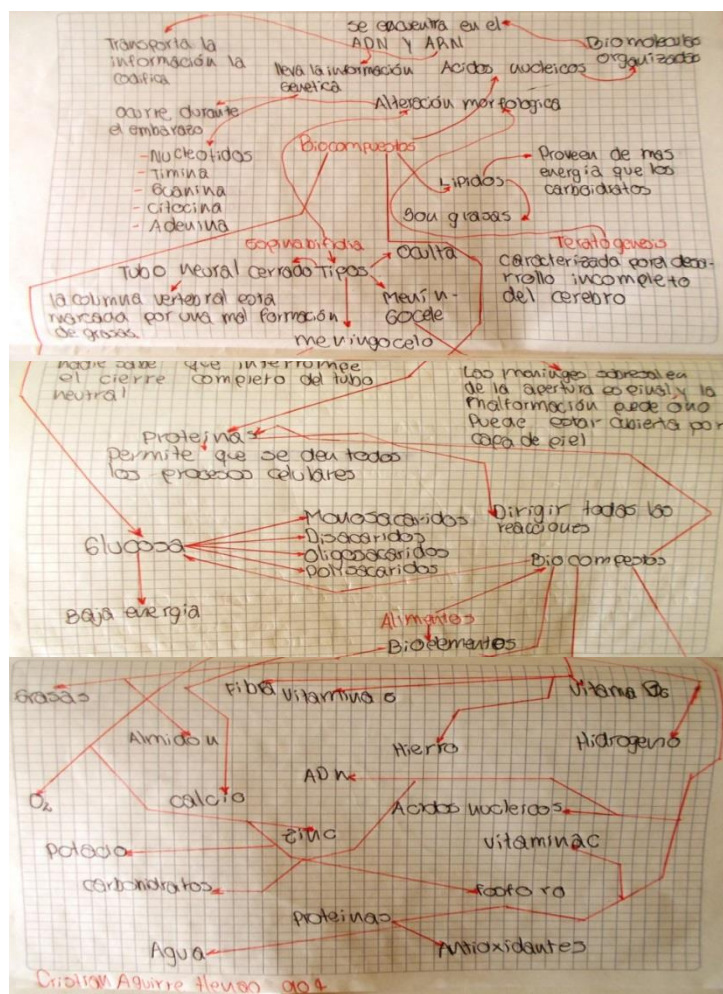 se encuentra en el
ADN Y ARN
Transporta la
información la
codifica
lleva la información
genetica
Acidos nucleicos
Biomoleculas
organizadas
ocurre durante
el embarazo
Alteración morfologica
- Nucleotidos
- Timina
- Guanina
- Citocina
- Adenina
Biocompuestos
Lipidos
Proveen de mas
energia que los
carboidratos
Son grasas
Espinabifidia
Teratogenesis
Tubo neural cerrado
Tipos
Oculta
caracterizada por el desa-
rrollo incompleto
del cerebro
la columna vertebral esta
marcada por una mal formación
de grasas
Menin-
Gocele
meningocelo
nadie sabe que interrumpe
el cierre completo del tubo
neutral
Las meninges sobresalen
de la apertura espinal y la
malformación puede o no
Puede estar cubierta por
capa de piel
Proteinas
Permite que se den todos
los procesos celulares
Dirigir todas las
reacciones
Glucosa
Monosacaridos
Disacaridos
Oligosacaridos
Polisacaridos
Biocompestos
Baja energia
Alimentos
Bioelementos
Grasas
Fibra
Vitaminas
Vitama Bs
Almidon
Hierro
Hidrogeno
ADN
O2
calcio
Acidos nucleicos
zinc
Potacio
vitamina c
carbohidratos
fosforo
Proteinas
Agua
Antioxidantes
Cristian Aguirre Alonso 904